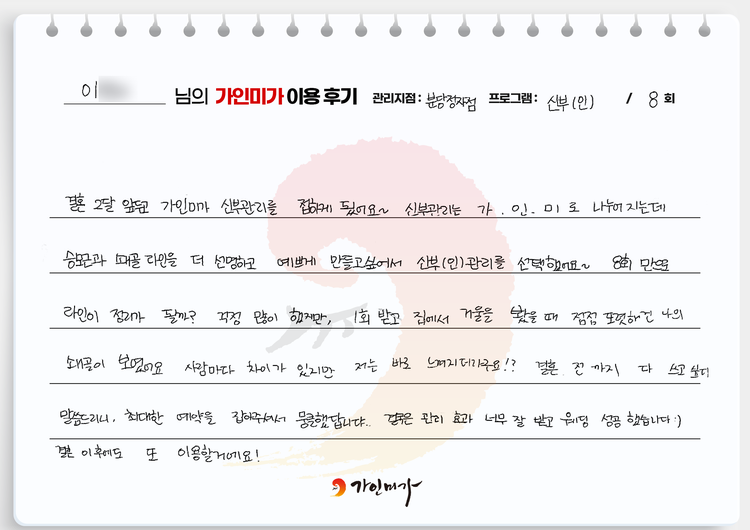 이 님의 가인미가 이용 후기 관리지점 : 분당정자점 프로그램 : 신부(인) / 8 회
결혼 2달 앞두고 가인미가 신부관리를 접하게 됬어요~ 신부관리는 가. 인. 미로 나누어지는데
승모근과 쇄골라인을 더 선명하고 예쁘게 만들고싶어서 신부(인)관리를 선택했어요~ 8회 만으로
라인이 정리가 될까? 걱정 많이 했지만, 1회 받고 집에서 거울을 봤을 때 점점 또렷해진 나의
쇄골이 보였어요 사람마다 차이가 있지만 저는 바로 느껴지더라구요!? 결혼 전까지 다 쓰고 싶다
말씀드리니, 최대한 예약을 잡아주셔서 뭉클했답니다.. 결국은 관리 효과 너무 잘 받고 웨딩 성공 했습니다:)
결혼 이후에도 또 이용할거에요!
가인미가